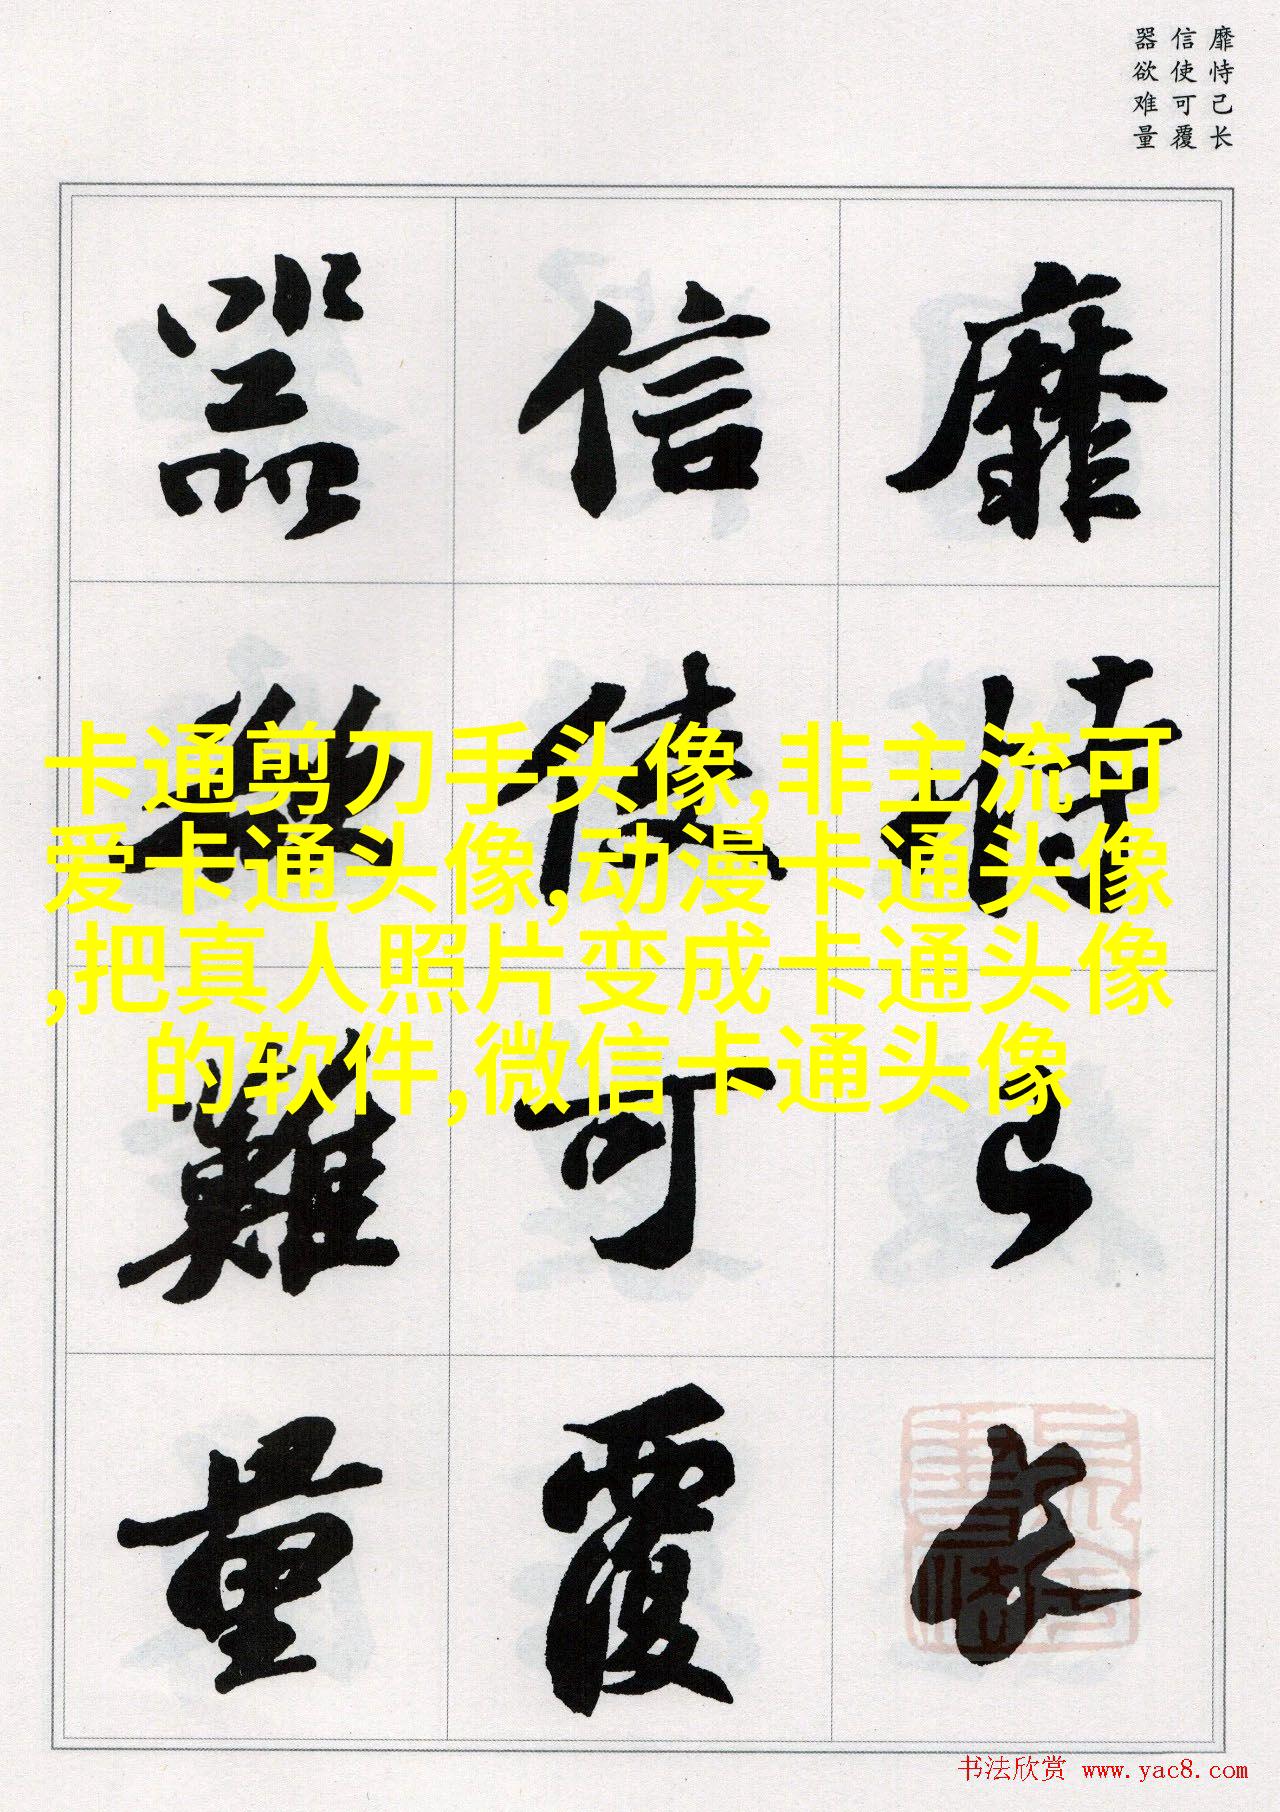 靡恃己长
信使可覆
器欲难量
靡恃己长
信使可覆
器欲難量
卡通剪刀手头像,非主流可
爱卡通头像,动漫卡通头像
,把真人照片变成卡通头像
的软件,微信卡通头像
书法欣赏 www.yac8.com